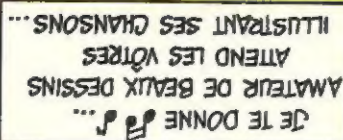 JE TE DONNE ...
AMATEUR DE BEAUX DESSINS
ATTEND LES VÔTRES
ILLUSTRANT SES CHANSONS...